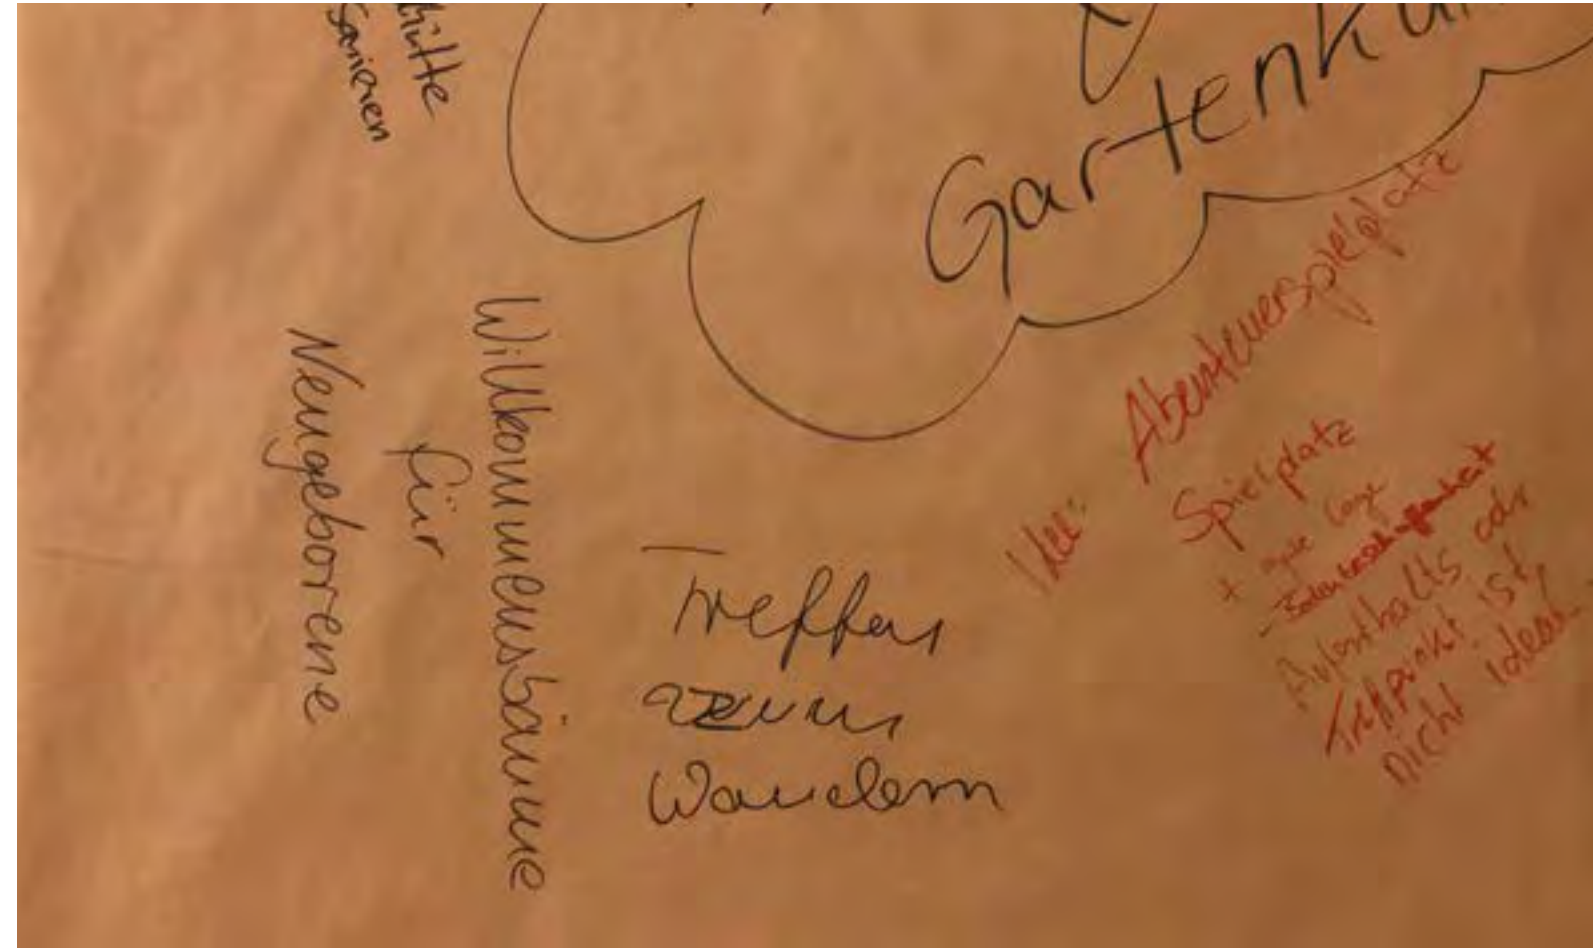 hütte
sanieren
Willkommensbäume
für
Neugeborene
Treffen
zum
Wandern
Idee: Abenteuerspielplatz
Spielplatz
+ gute Lage
- Bodenbeschaffenheit
Aufenthalts oder
Treffpunkt ist
nicht ideal